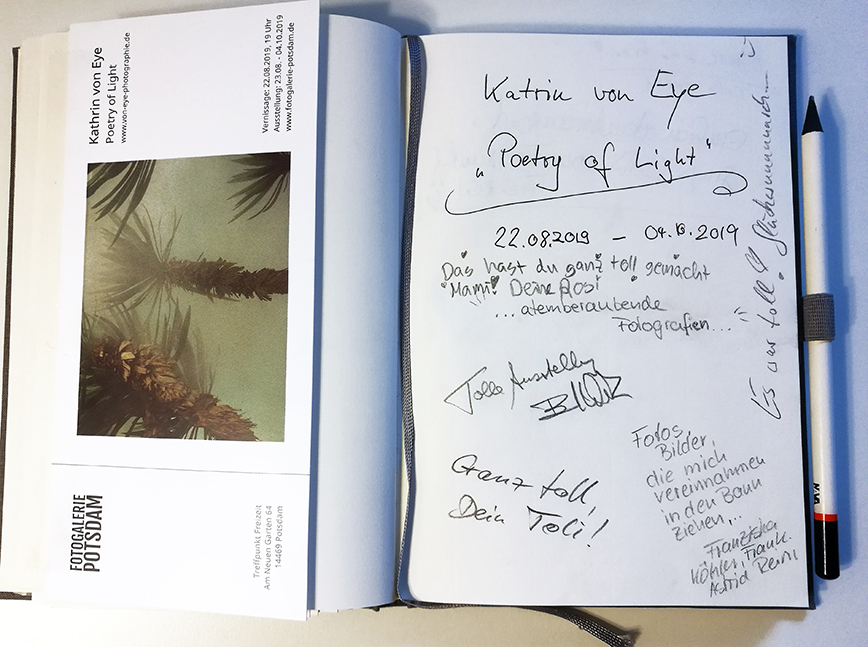 Kathrin von Eye
Poetry of Light
www.von-eye-photographie.de
Vernissage: 22.08.2019, 19 Uhr
Ausstellung: 23.08. - 04.10.2019
www.fotogalerie-potsdam.de
FOTOGALERIE
POTSDAM
Treffpunkt Freizeit
Am Neuen Garten 64
14469 Potsdam
Katrin von Eye
„Poetry of Light"
22.08.2019 – 04.10.2019
Das hast du ganz toll gemacht
Mami! Deine Rosi
... atemberaubende
Fotografien...
Tolle Ausstellung
Ganz toll,
Dein Toli!
Fotos,
Bilder,
die mich
vereinnahmen
in den Bann
ziehen...
Franziska
Köhler, Frank.
Astrid
Es war toll